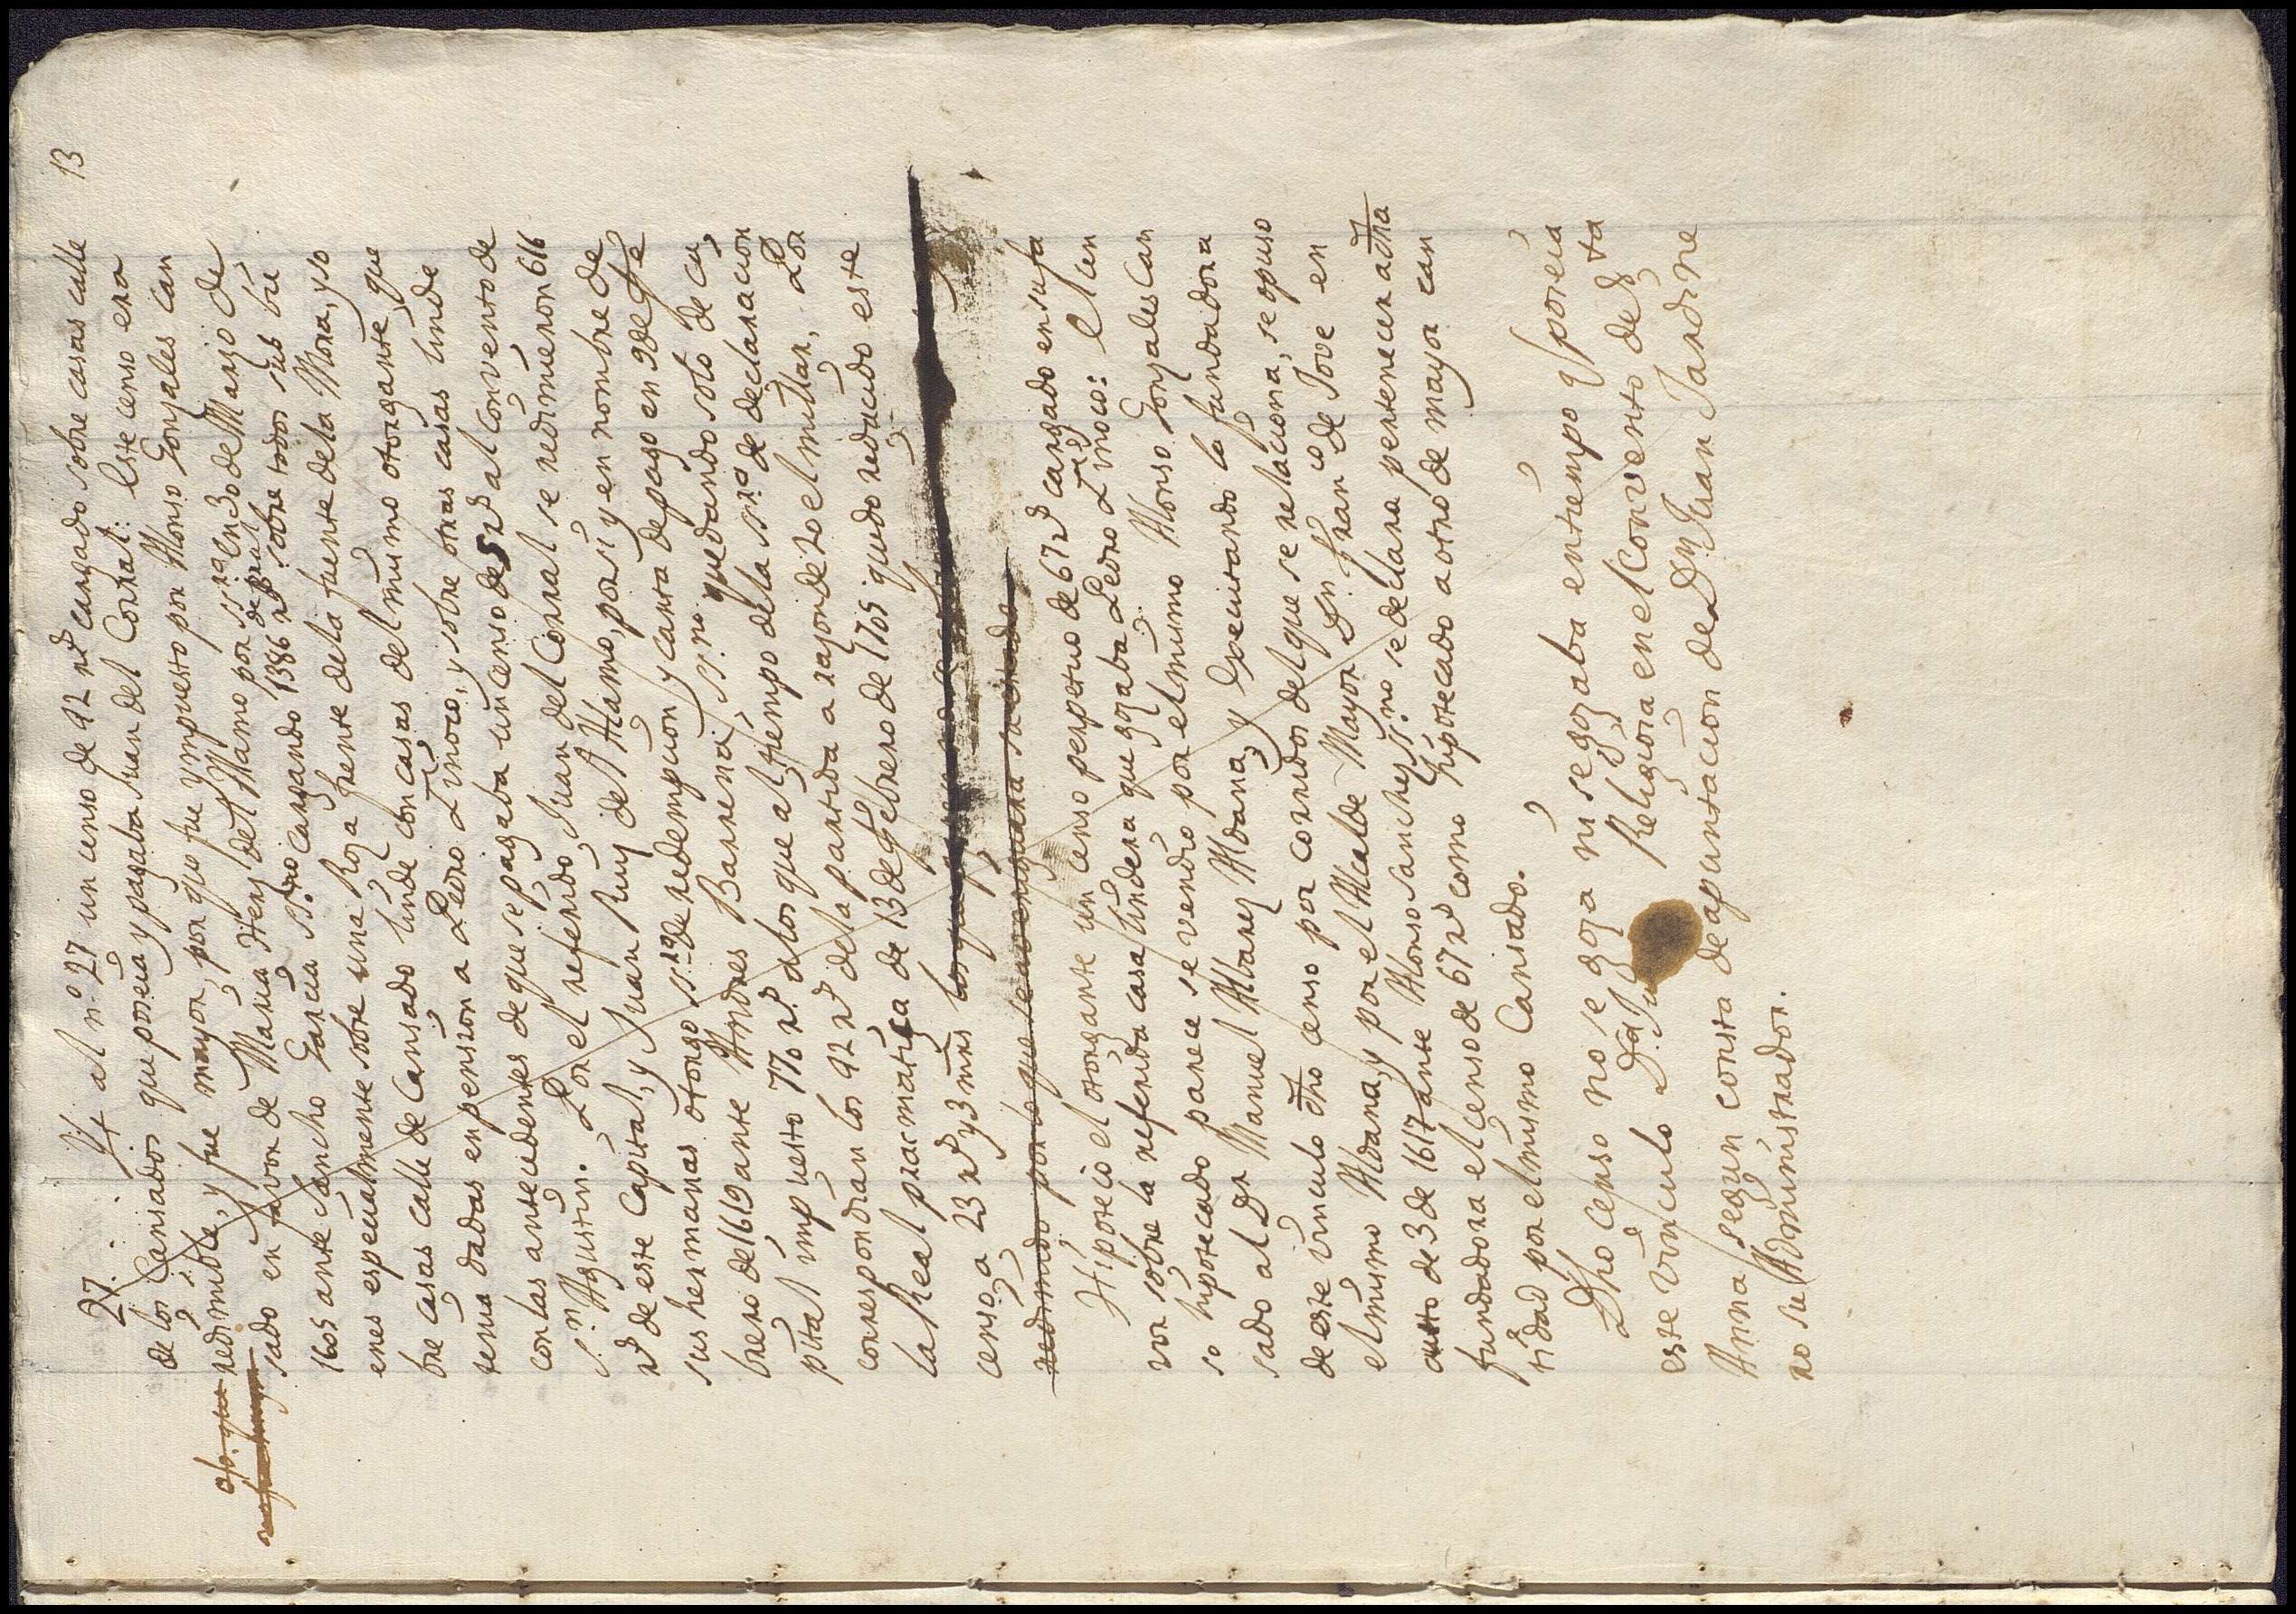 13
27. It al n.º 27 un censo de 92 rs cargado sobre casas calle
de los Cansados que poseia y pagaba Juan del Corral: Este censo era
redimible, y fue mayor, por que fue ympuesto por Alonso Gonzales Can
sado en favor de Maria Hrez del Alamo por ss.ra en 30 de Marzo de
1605 ante Sancho Garcia ss.no cargando 1386 rs de pral sobre todos sus bie
nes especialmente sobre una Roza frente de la fuente de la Mora, y so
bre casas calle de Cansado linde con casas del mismo otorgante, que
tenia dadas en pension a Pedro Tinoco, y sobre otras casas linde
con las antecedentes de que se pagaba un censo de 5 rs al Convento de
S.n Agustin. Por el referido Juan del Corral se redimieron 616
rs de este Capital, y Juan Ruiz del Alamo, por si y en nombre de
sus hermanas otorgo ss.ra de redempcion y carta de pago en 9 de fe
brero de 1619 ante Andres Barrena ss.no quedando solo de ca
pital impuesto 770 rs a los que al tiempo de la ss.ra de declaracion
correspondian los 92 rs de la partida a razon de 20 el millar, Por
la Real pracmatica de 13 de febrero de 1705 quedo reducido este
censo a 23 rs y 3 mrs
redimido por lo que se averiguara su estado
Hipoteco el otorgante un censo perpetuo de 67 rs cargado en su fa
vor sobre la referida casa lindera que gozaba Pedro Tinoco: el cen
so hipotecado parece se vendio por el mismo Alonso Gonzales Can
sado al Dr Manuel Albarez Aldana, y Executando la fundadora
de este vinculo dho censo por corridos del que se relaciona, se opuso
el mismo Aldana, y por el Alcalde Mayor Dn Fran.co de Jove en
auto de 3 de 1617 ante Alonso Sanchez ss.no se declara pertenecer a dha
fundadora el censo de 67 rs como hipotecado a otro de mayor can
tidad por el mismo Cansado.
Dho censo no se goza ni se gozaba en tiempo q poseia
este vinculo D.a Religiosa en el Convento de S.ta
Anna segun consta de apuntacion de Dn Juan Jardine
ro su Administrador.